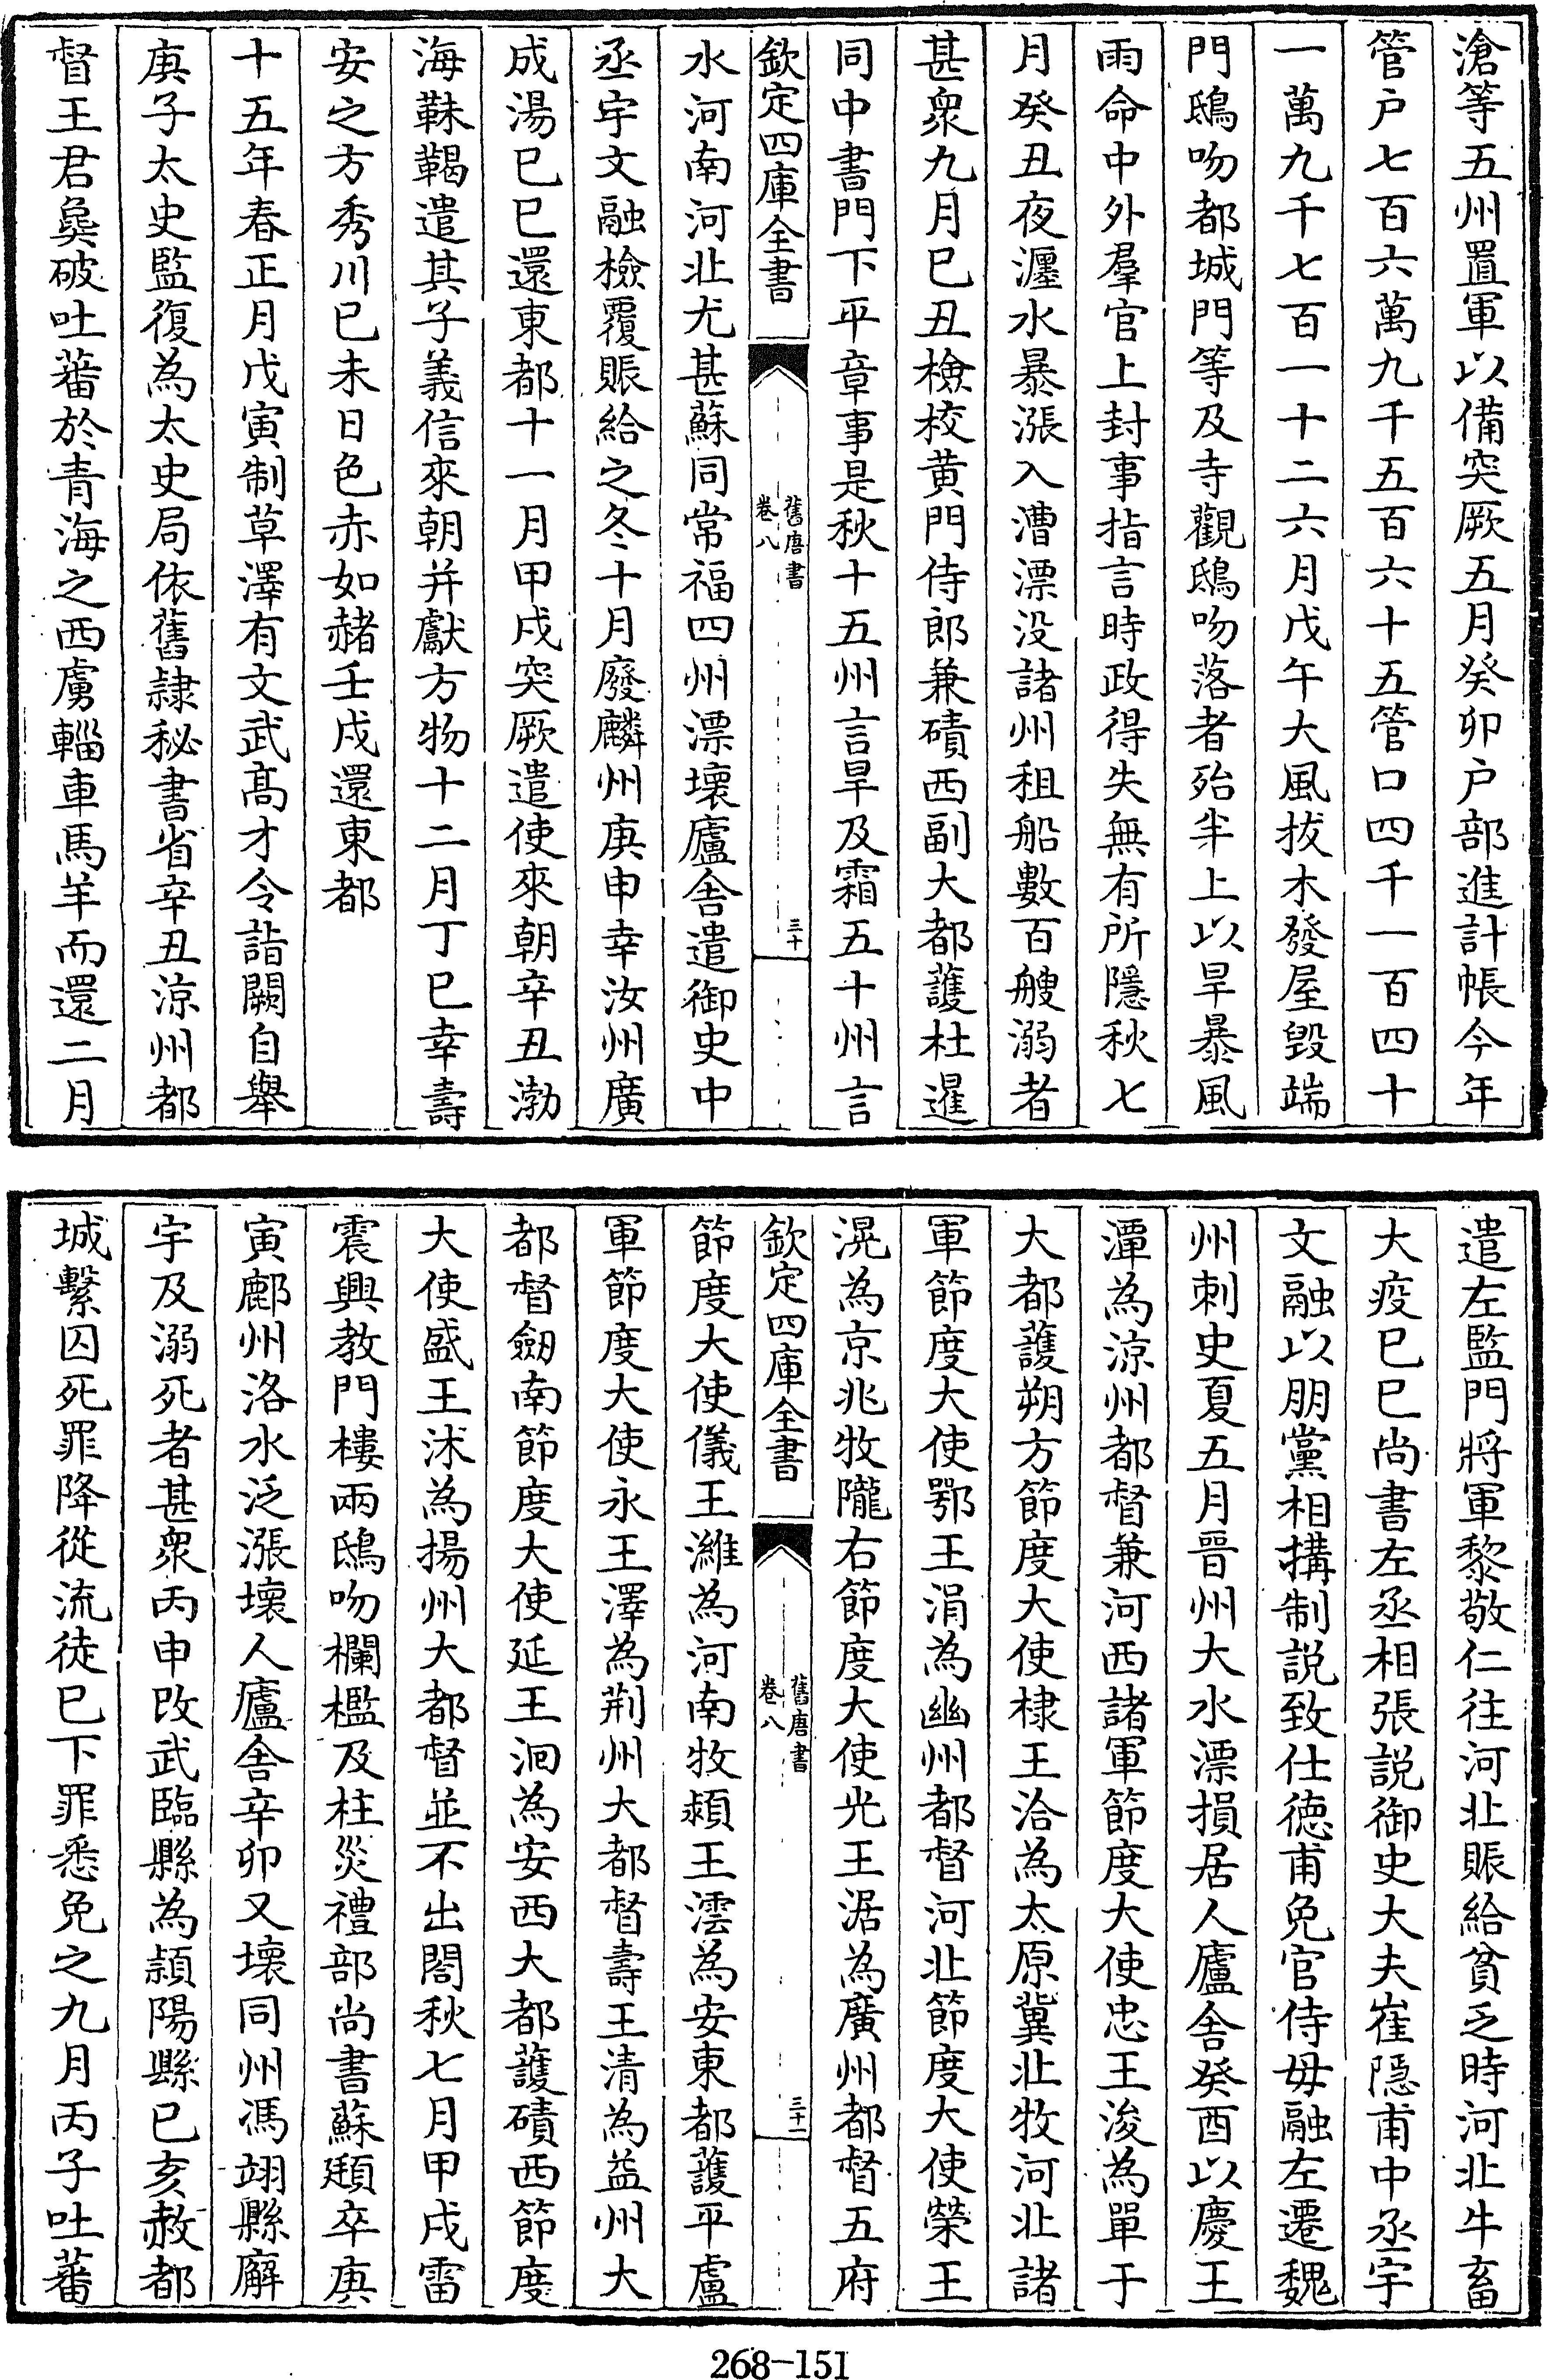 滄等五州置軍以備突厥五月癸卯户部進計帳今年
管户七百六萬九千五百六十五管口四千一百四十
一萬九千七百一十二六月戊午大風拔木發屋毁端
門鴟吻都城門等及寺觀鴟吻落者殆半上以旱暴風
雨命中外羣官上封事指言時政得失無有所隱秋七
月癸丑夜瀍水暴漲入漕漂没諸州租船數百艘溺者
甚衆九月已丑檢校黄門侍郎兼磧西副大都護杜暹
同中書門下平章事是秋十五州言旱及霜五十州言
欽定四庫全書
舊唐書
卷八
三十
水河南河北尤甚蘇同常福四州漂壞廬舍遣御史中
丞宇文融檢覆賑給之冬十月廢麟州庚申幸汝州廣
成湯已巳還東都十一月甲戌突厥遣使來朝辛丑渤
海靺鞨遣其子義信來朝并獻方物十二月丁巳幸壽
安之方秀川已未日色赤如赭壬戌還東都
十五年春正月戊寅制草澤有文武髙才令詣闕自舉
庚子太史監復為太史局依舊隷秘書省辛丑涼州都
督王君㚟破吐蕃於青海之西虜輜車馬羊而還二月
遣左監門將軍黎敬仁往河北賑給貧乏時河北牛畜
大疫已巳尚書左丞相張説御史大夫崔隠甫中丞宇
文融以朋黨相搆制説致仕徳甫免官侍母融左遷魏
州刺史夏五月晉州大水漂損居人廬舍癸酉以慶王
潭為涼州都督兼河西諸軍節度大使忠王浚為單于
大都護朔方節度大使棣王洽為太原冀北牧河北諸
軍節度大使鄂王涓為幽州都督河北節度大使榮王
滉為京兆牧隴右節度大使光王涺為廣州都督五府
欽定四庫全書
舊唐書
卷八
三十一
節度大使儀王濰為河南牧潁王澐為安東都護平盧
軍節度大使永王澤為荆州大都督壽王清為益州大
都督劒南節度大使延王洄為安西大都護磧西節度
大使盛王沭為揚州大都督並不出閤秋七月甲戌雷
震興教門樓兩鴟吻欄檻及柱災禮部尚書蘇頲卒庚
寅鄜州洛水泛漲壞人廬舍辛卯又壞同州馮翊縣廨
宇及溺死者甚衆丙申改武臨縣為頴陽縣已亥赦都
城繫囚死罪降從流徒已下罪悉免之九月丙子吐蕃
268-151